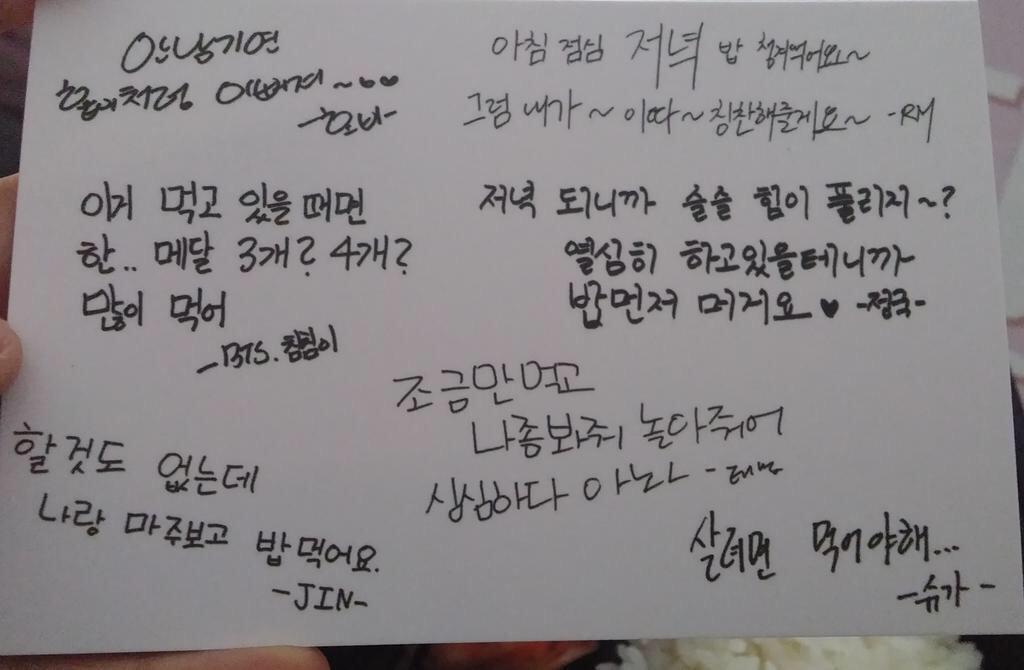 호비처럼 이뻐져~
-호비-
아침 점심 저녁 밥 챙겨먹어요~
그럼 내가~ 이따~ 칭찬해줄게요~ -RM
이거 먹고 있을 때면
한.. 메달 3개? 4개?
많이 먹어
-BTS. 침침이
저녁 되니까 슬슬 힘이 풀리지~?
열심히 하고있을테니까
밥먼저 머거요 ♥ -정국-
조금만 먹고
나좀봐줘 놀아줘어
심심하다 아노ㅏ -태형
할것도 없는데
나랑 마주보고 밥먹어요.
-JIN-
살려면 먹어야해...
-슈가-